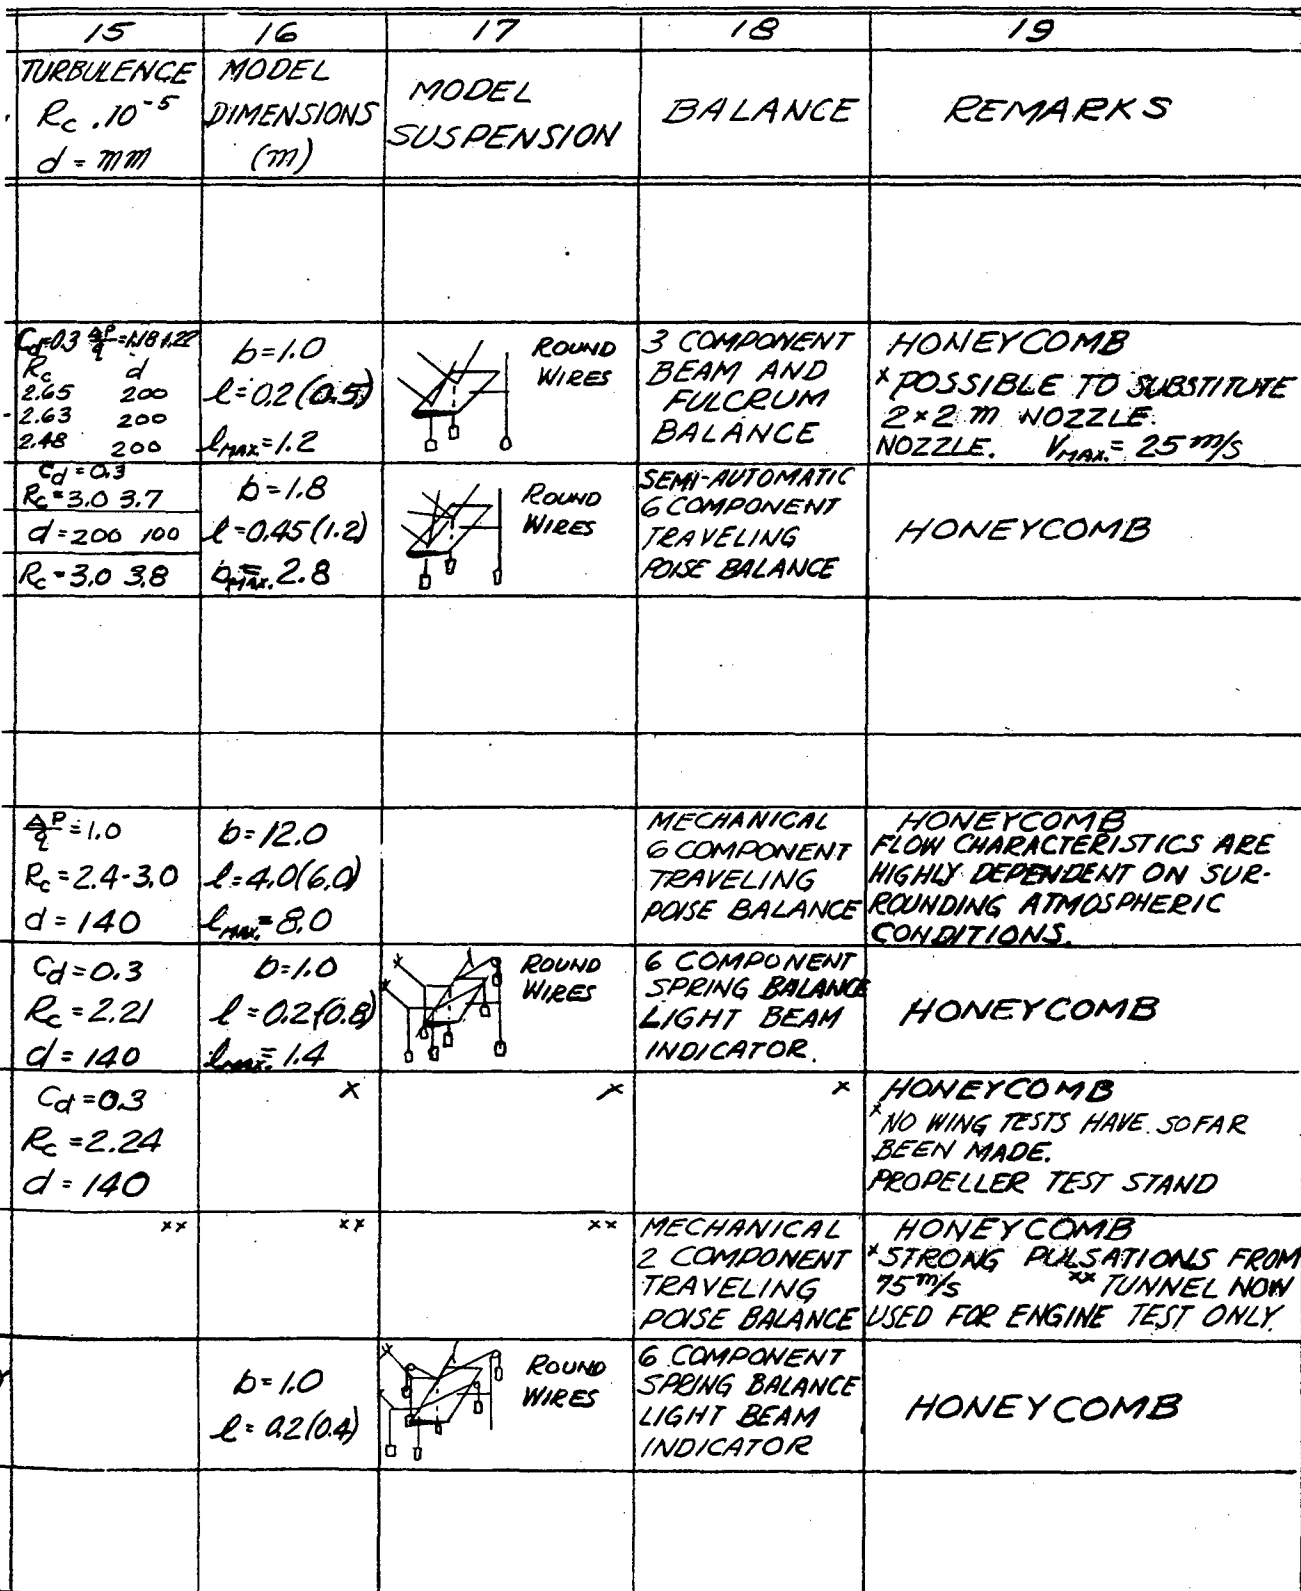 15 16 17 18 19
TURBULENCE
Rc .10⁻⁵
d = mm
MODEL
DIMENSIONS
(m)
MODEL
SUSPENSION
BALANCE
REMARKS
Cd=0.3 ΔP/q =1.18 1.22
Rc d
2.65 200
2.63 200
2.48 200
b=1.0
l=0.2(0.5)
lMAX.=1.2
ROUND
WIRES
3 COMPONENT
BEAM AND
FULCRUM
BALANCE
HONEYCOMB
x POSSIBLE TO SUBSTITUTE
2×2 m NOZZLE.
NOZZLE. VMAX.= 25 m/s
Cd = 0.3
Rc=3.0 3.7
d=200 100
Rc=3.0 3.8
b=1.8
l=0.45(1.2)
bMAX.=2.8
ROUND
WIRES
SEMI-AUTOMATIC
6 COMPONENT
TRAVELING
POISE BALANCE
HONEYCOMB
ΔP/q =1.0
Rc=2.4-3.0
d=140
b=12.0
l=4.0(6.0)
lMAX.=8.0
MECHANICAL
6 COMPONENT
TRAVELING
POISE BALANCE
HONEYCOMB
FLOW CHARACTERISTICS ARE
HIGHLY DEPENDENT ON SUR-
ROUNDING ATMOSPHERIC
CONDITIONS.
Cd=0.3
Rc=2.21
d=140
b=1.0
l=0.2(0.8)
lMAX.=1.4
x
x
ROUND
WIRES
6 COMPONENT
SPRING BALANCE
LIGHT BEAM
INDICATOR.
HONEYCOMB
Cd=0.3
Rc=2.24
d=140
x
x
x
HONEYCOMB
x NO WING TESTS HAVE SO FAR
BEEN MADE.
PROPELLER TEST STAND
xx
xx
xx
MECHANICAL
2 COMPONENT
TRAVELING
POISE BALANCE
HONEYCOMB
x STRONG PULSATIONS FROM
75 m/s xx TUNNEL NOW
USED FOR ENGINE TEST ONLY.
b=1.0
l=0.2(0.4)
x
x
ROUND
WIRES
6 COMPONENT
SPRING BALANCE
LIGHT BEAM
INDICATOR
HONEYCOMB